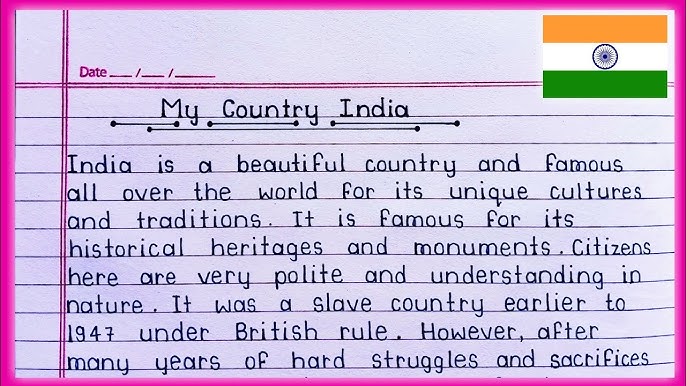 Date __/__/____
My Country India
India is a beautiful country and famous
all over the world for its unique cultures
and traditions. It is famous for its
historical heritages and monuments. Citizens
here are very polite and understanding in
nature. It was a slave country earlier to
1947 under British rule. However, after
many years of hard struggles and sacrifices